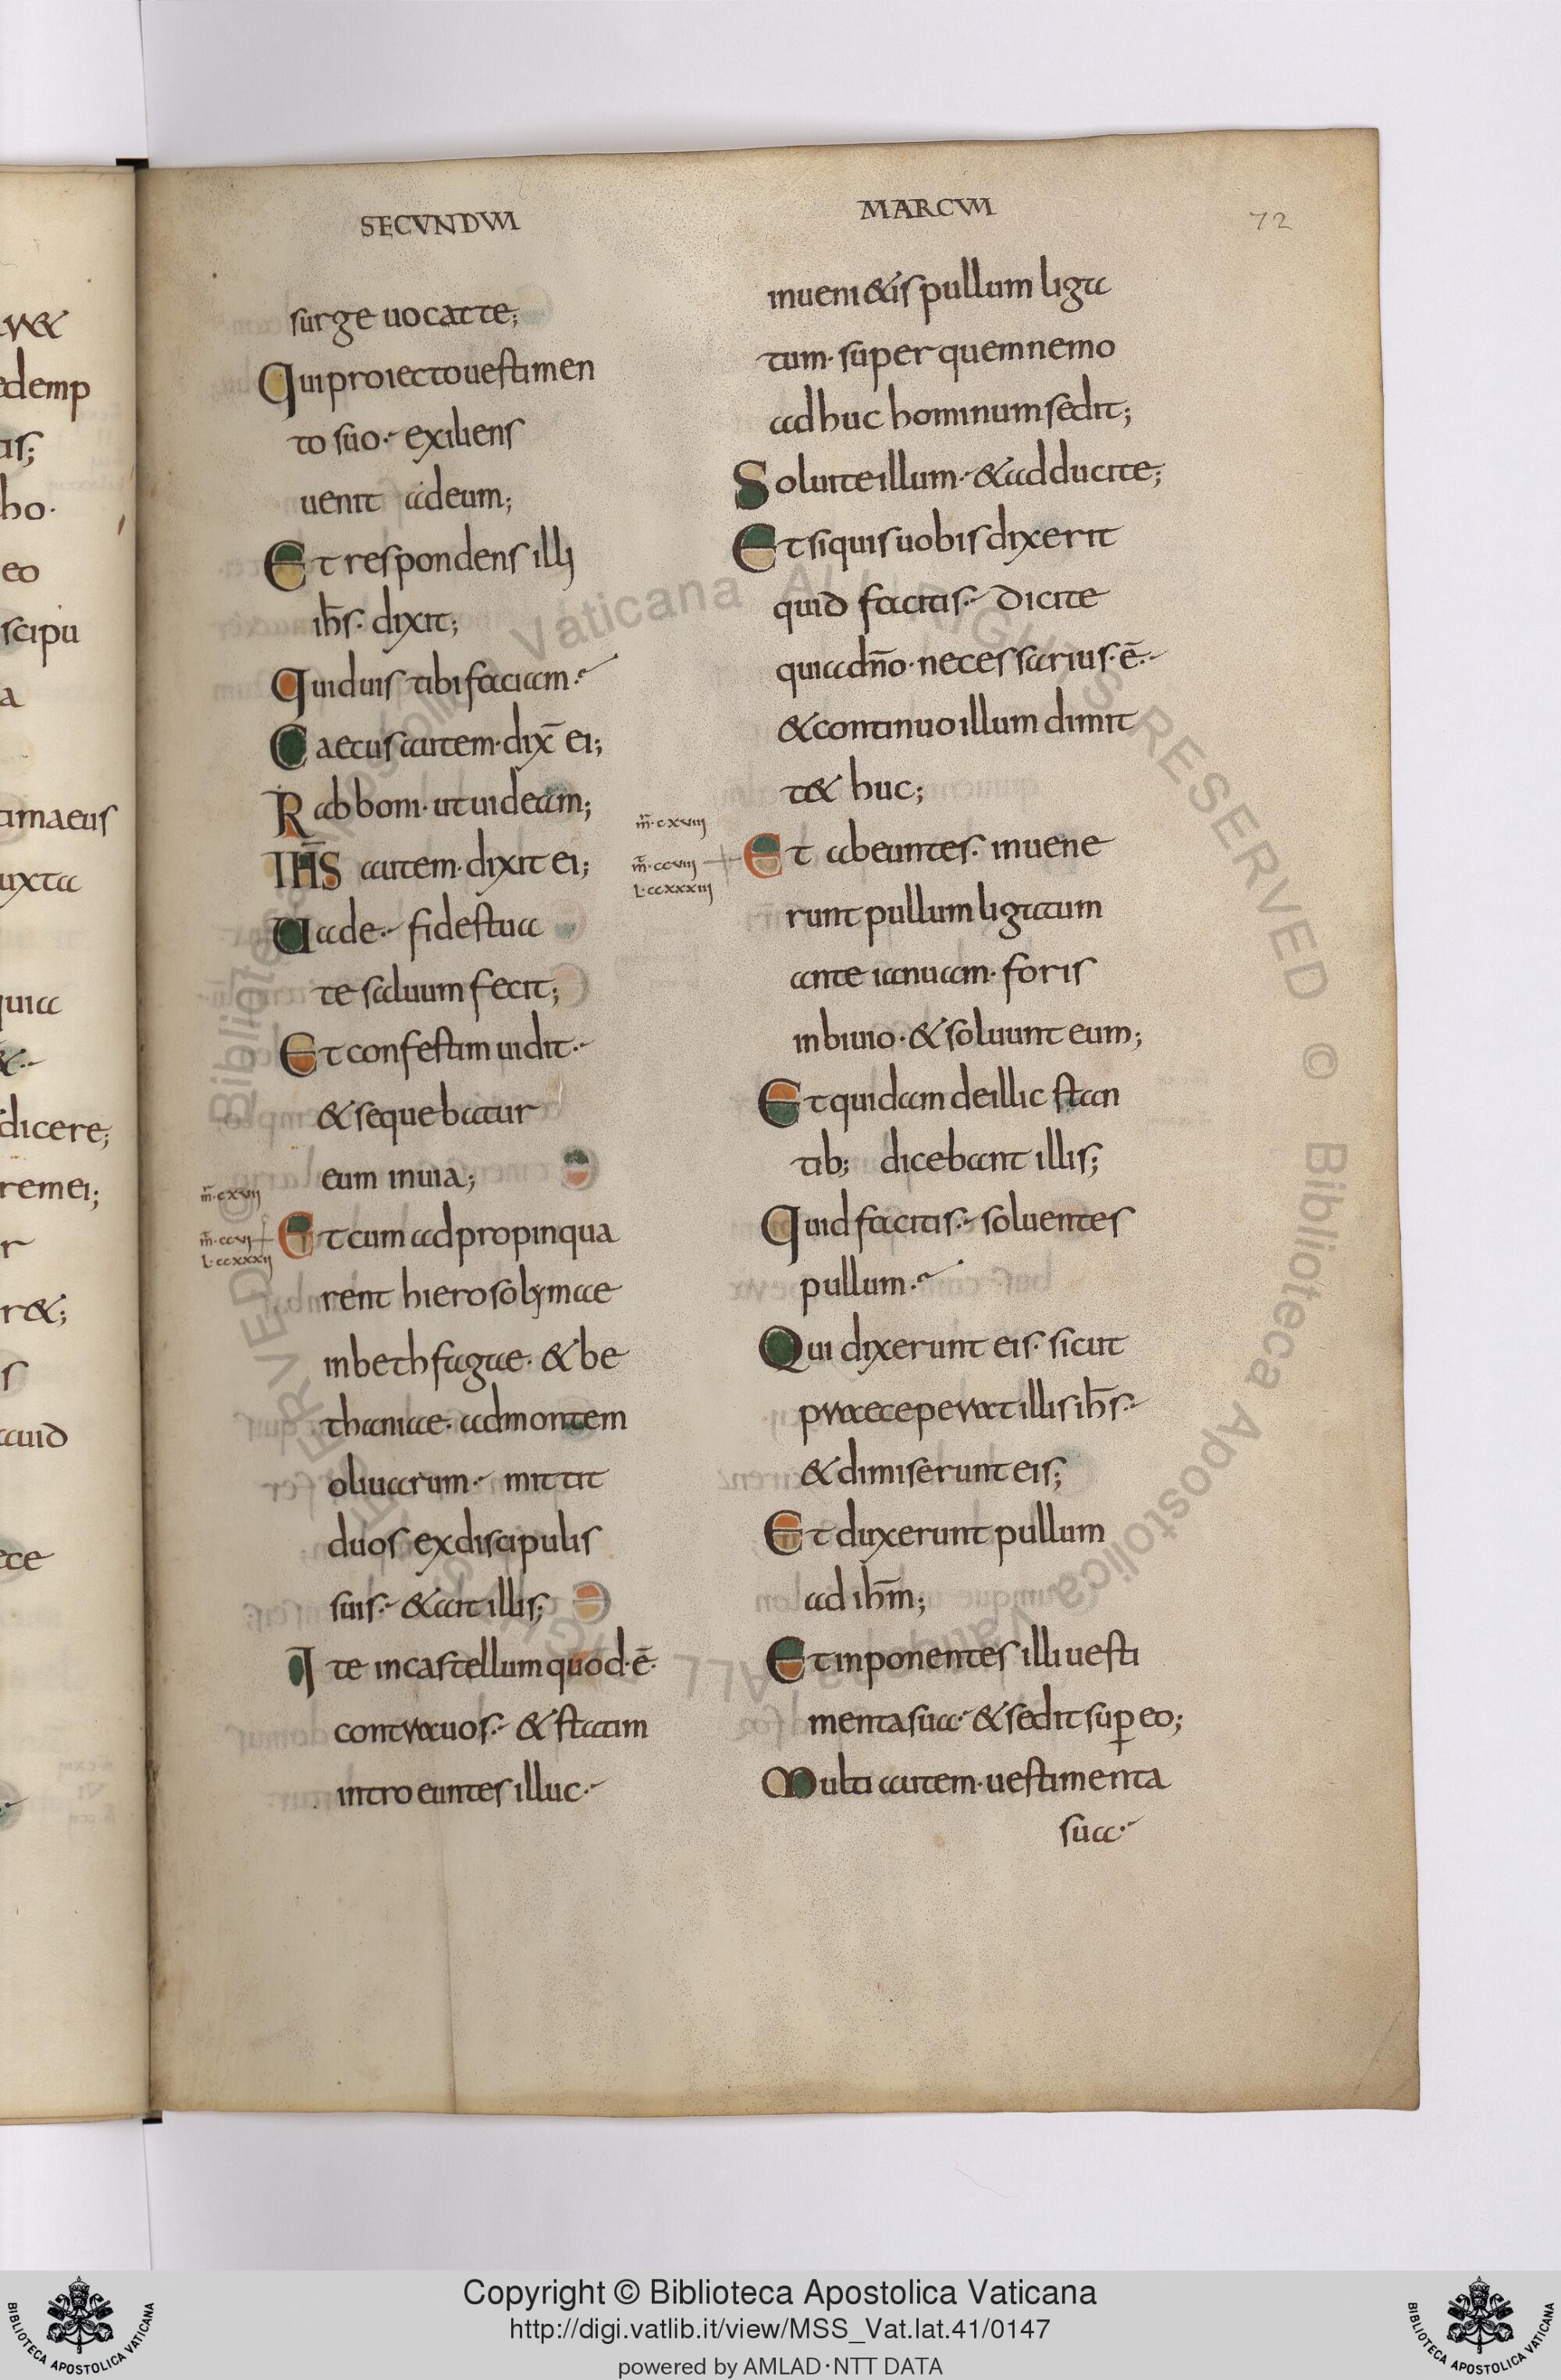 SECUNDUM
MARCUM
72
surge uocat te;
Qui proiecto uestimen
to suo· exiliens
uenit ad eum;
Et respondens illi
ih̄s· dixit;
Quid uis tibi faciam·
Caecus autem· dix̄ ei;
Rabboni· ut uideam;
IH̄S autem· dixit ei;
Uade· fides tua
te saluum fecit;
Et confestim uidit·
& sequebatur
eum in uia;
m̄·cxvii
m̄·ccvi
l·ccxxxii
Et cum adpropinqua
rent hierosolymae
in bethfagae· & be
thaniae· ad montem
oliuarum· mittit
duos ex discipulis
suis· & ait illis;
Ite in castellum quod·ē·
contra uos· & statim
intro euntes illuc·
inueni&is pullum liga
tum· super quem nemo
ad huc hominum sedit;
Soluite illum· & adducite;
Et si quis uobis dixerit
quid facitis· dicite
quia dn̄o· necessarius·ē·
& continuo illum dimit
t& huc;
m̄·cxviii
m̄·ccviii
l·ccxxxiii
Et abeuntes· inuene
runt pullum ligatum
ante ianuam· foris
in biuio· & soluunt eum;
Et quidam de illic stan
tib; dicebant illis;
Quid facitis· soluentes
pullum·
Qui dixerunt eis· sicut
praeceperat illis ih̄s·
& dimiserunt eis;
Et duxerunt pullum
ad ih̄m;
Et inponentes illi uesti
menta sua· & sedit sup̱ eo;
Multi autem· uestimenta
sua·
Copyright © Biblioteca Apostolica Vaticana
http://digi.vatlib.it/view/MSS_Vat.lat.41/0147
powered by AMLAD·NTT DATA